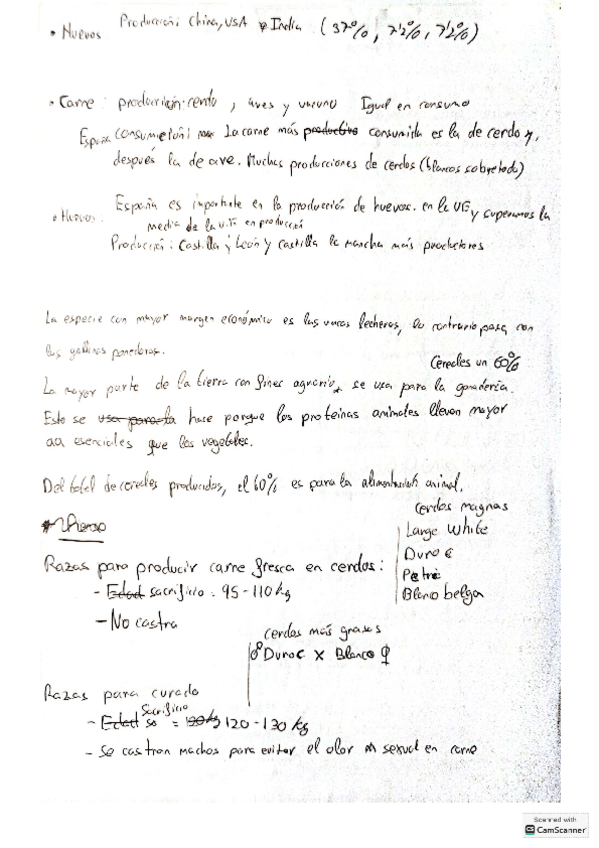 • Nuevos Producción: China, USA e India (37%, 7'2%, 7'2%)
• Carne: producción: cerdo, aves y vacuno Igual en consumo
España consume La carne más productiva consumida es la de cerdo y,
después la de ave. Muchas producciones de cerdos (blancos sobretodo)
• Huevos: España es importante en la producción de huevos. en la UE y superamos la
media de la U.E en producción
Producción: Castilla y León y castilla la mancha más productores
La especie con mayor margen económico es las vacas lecheras, lo contrario pasa con
las gallinas ponedoras.
Cereales un 60%
La mayor parte de la tierra con fines agrarios se usa para la ganadería.
Esto se usa para la hace porque las proteínas animales llevan mayor
aa esenciales que los vegetales.
Del total de cereales producidos, el 60% es para la alimentación animal.
Razas para producir carne fresca en cerdos:
- Edad sacrificio: 95-110 kg
- No castra
cerdos magras
Large White
Duroc
Blanco belga
cerdos más grasos
♂ Duroc X Blanco ♀
Razas para curado
- Edad se Sacrificio = 120-130 kg
- Se castran machos para evitar el olor sexual en carne
Scanned with
CamScanner